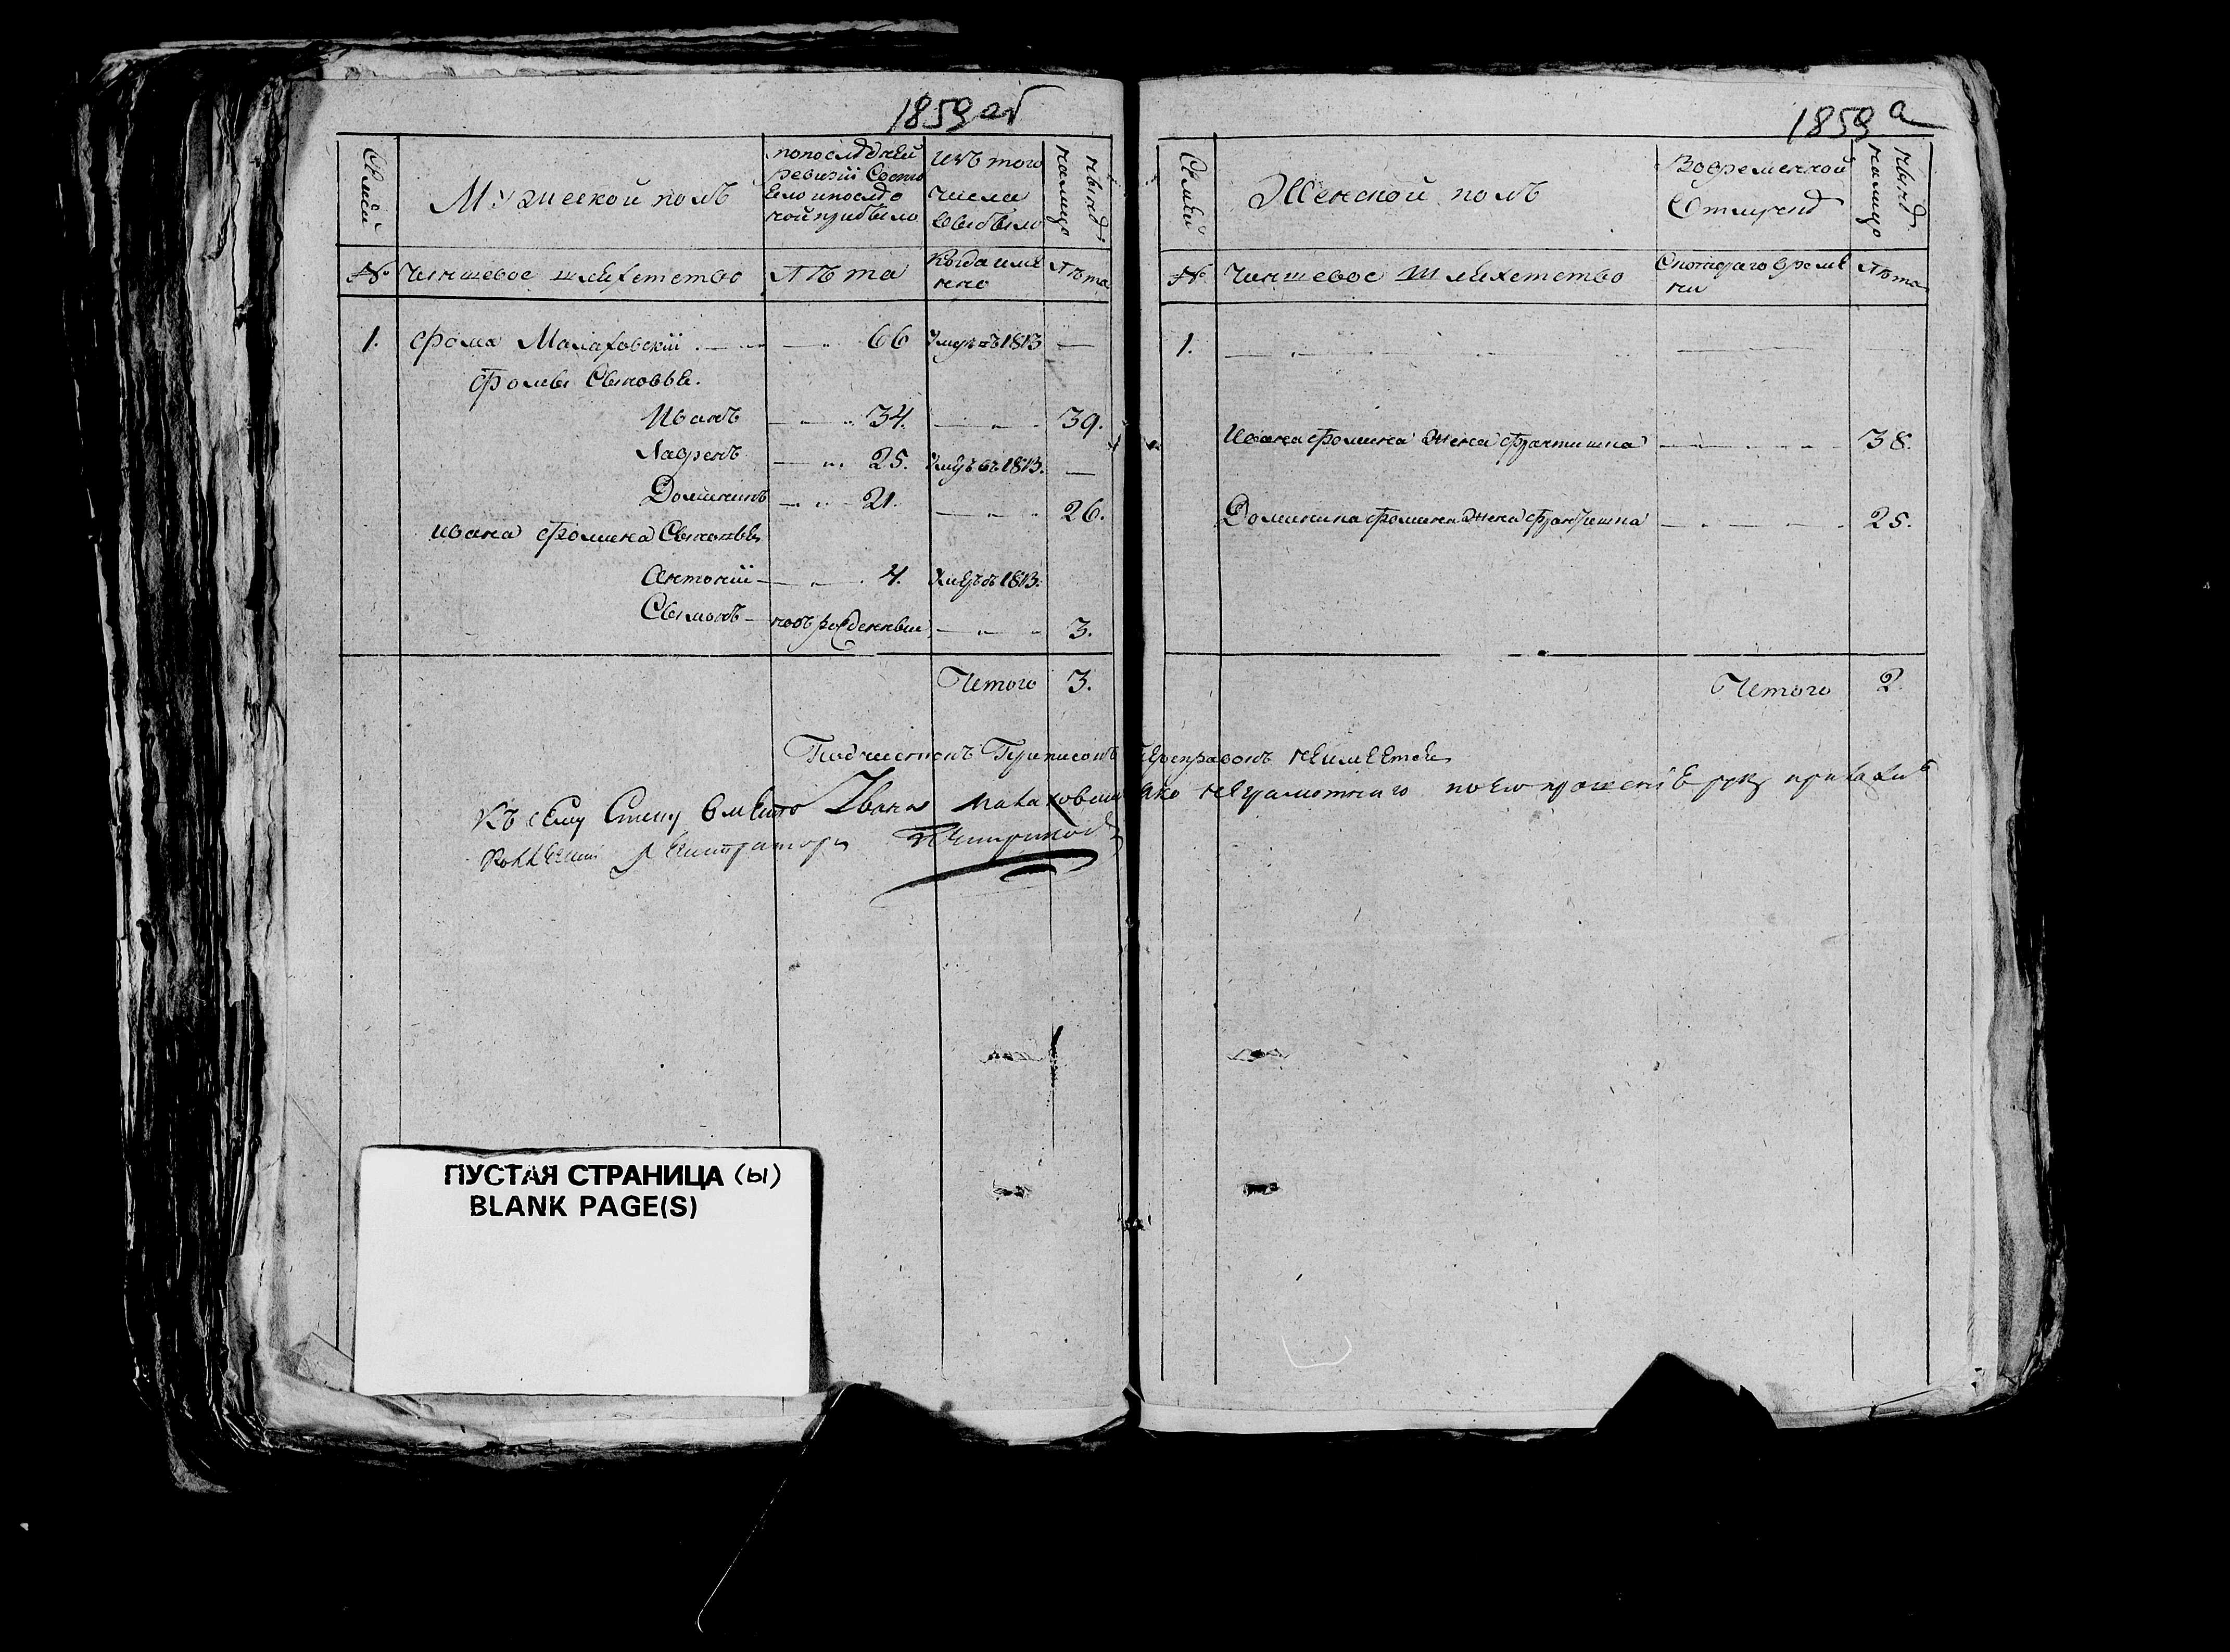 1859 об
Семьи
Мужеской полъ
попоследней
ревизіи Состо
Яло ипослѣ
ной прибыло
изъ того
числа
Выбыло
нынѣ
налицо
№ Чиншевое шляхетство
Лѣта
Когда имѣ
нно
Лѣта
1. Фома Малаховскій 66 Умръ въ 1813 —
Фомы Сыновья.
Иванъ 34. 39.
Лавренъ 25. Умръ въ 1813. —
Доминикъ 21. 26.
Ивана Фомина Сыновья
Антоній 4. Умръ въ 1813.
Сымонъ новорожденный 3.
Итого 3.
1859 а
Семьи
Женской полъ
Во временной
Отлучкѣ
нынѣ
налицо
№ Чиншевое шляхетство
Скотораго време
ни
Лѣта
1.
Ивана Фомина Жена Францишка 38.
Доминика Фомина Жена Францишка 25.
Итого 2.
Подчистокъ Приписокъ Переправокъ неимеется
Къ сему Списку вместо Ивана Малаховскаго яко неграмотнаго поего прошенію руку приложилъ
Коллежскій Регистраторъ
ПУСТАЯ СТРАНИЦА (Ы)
BLANK PAGE(S)